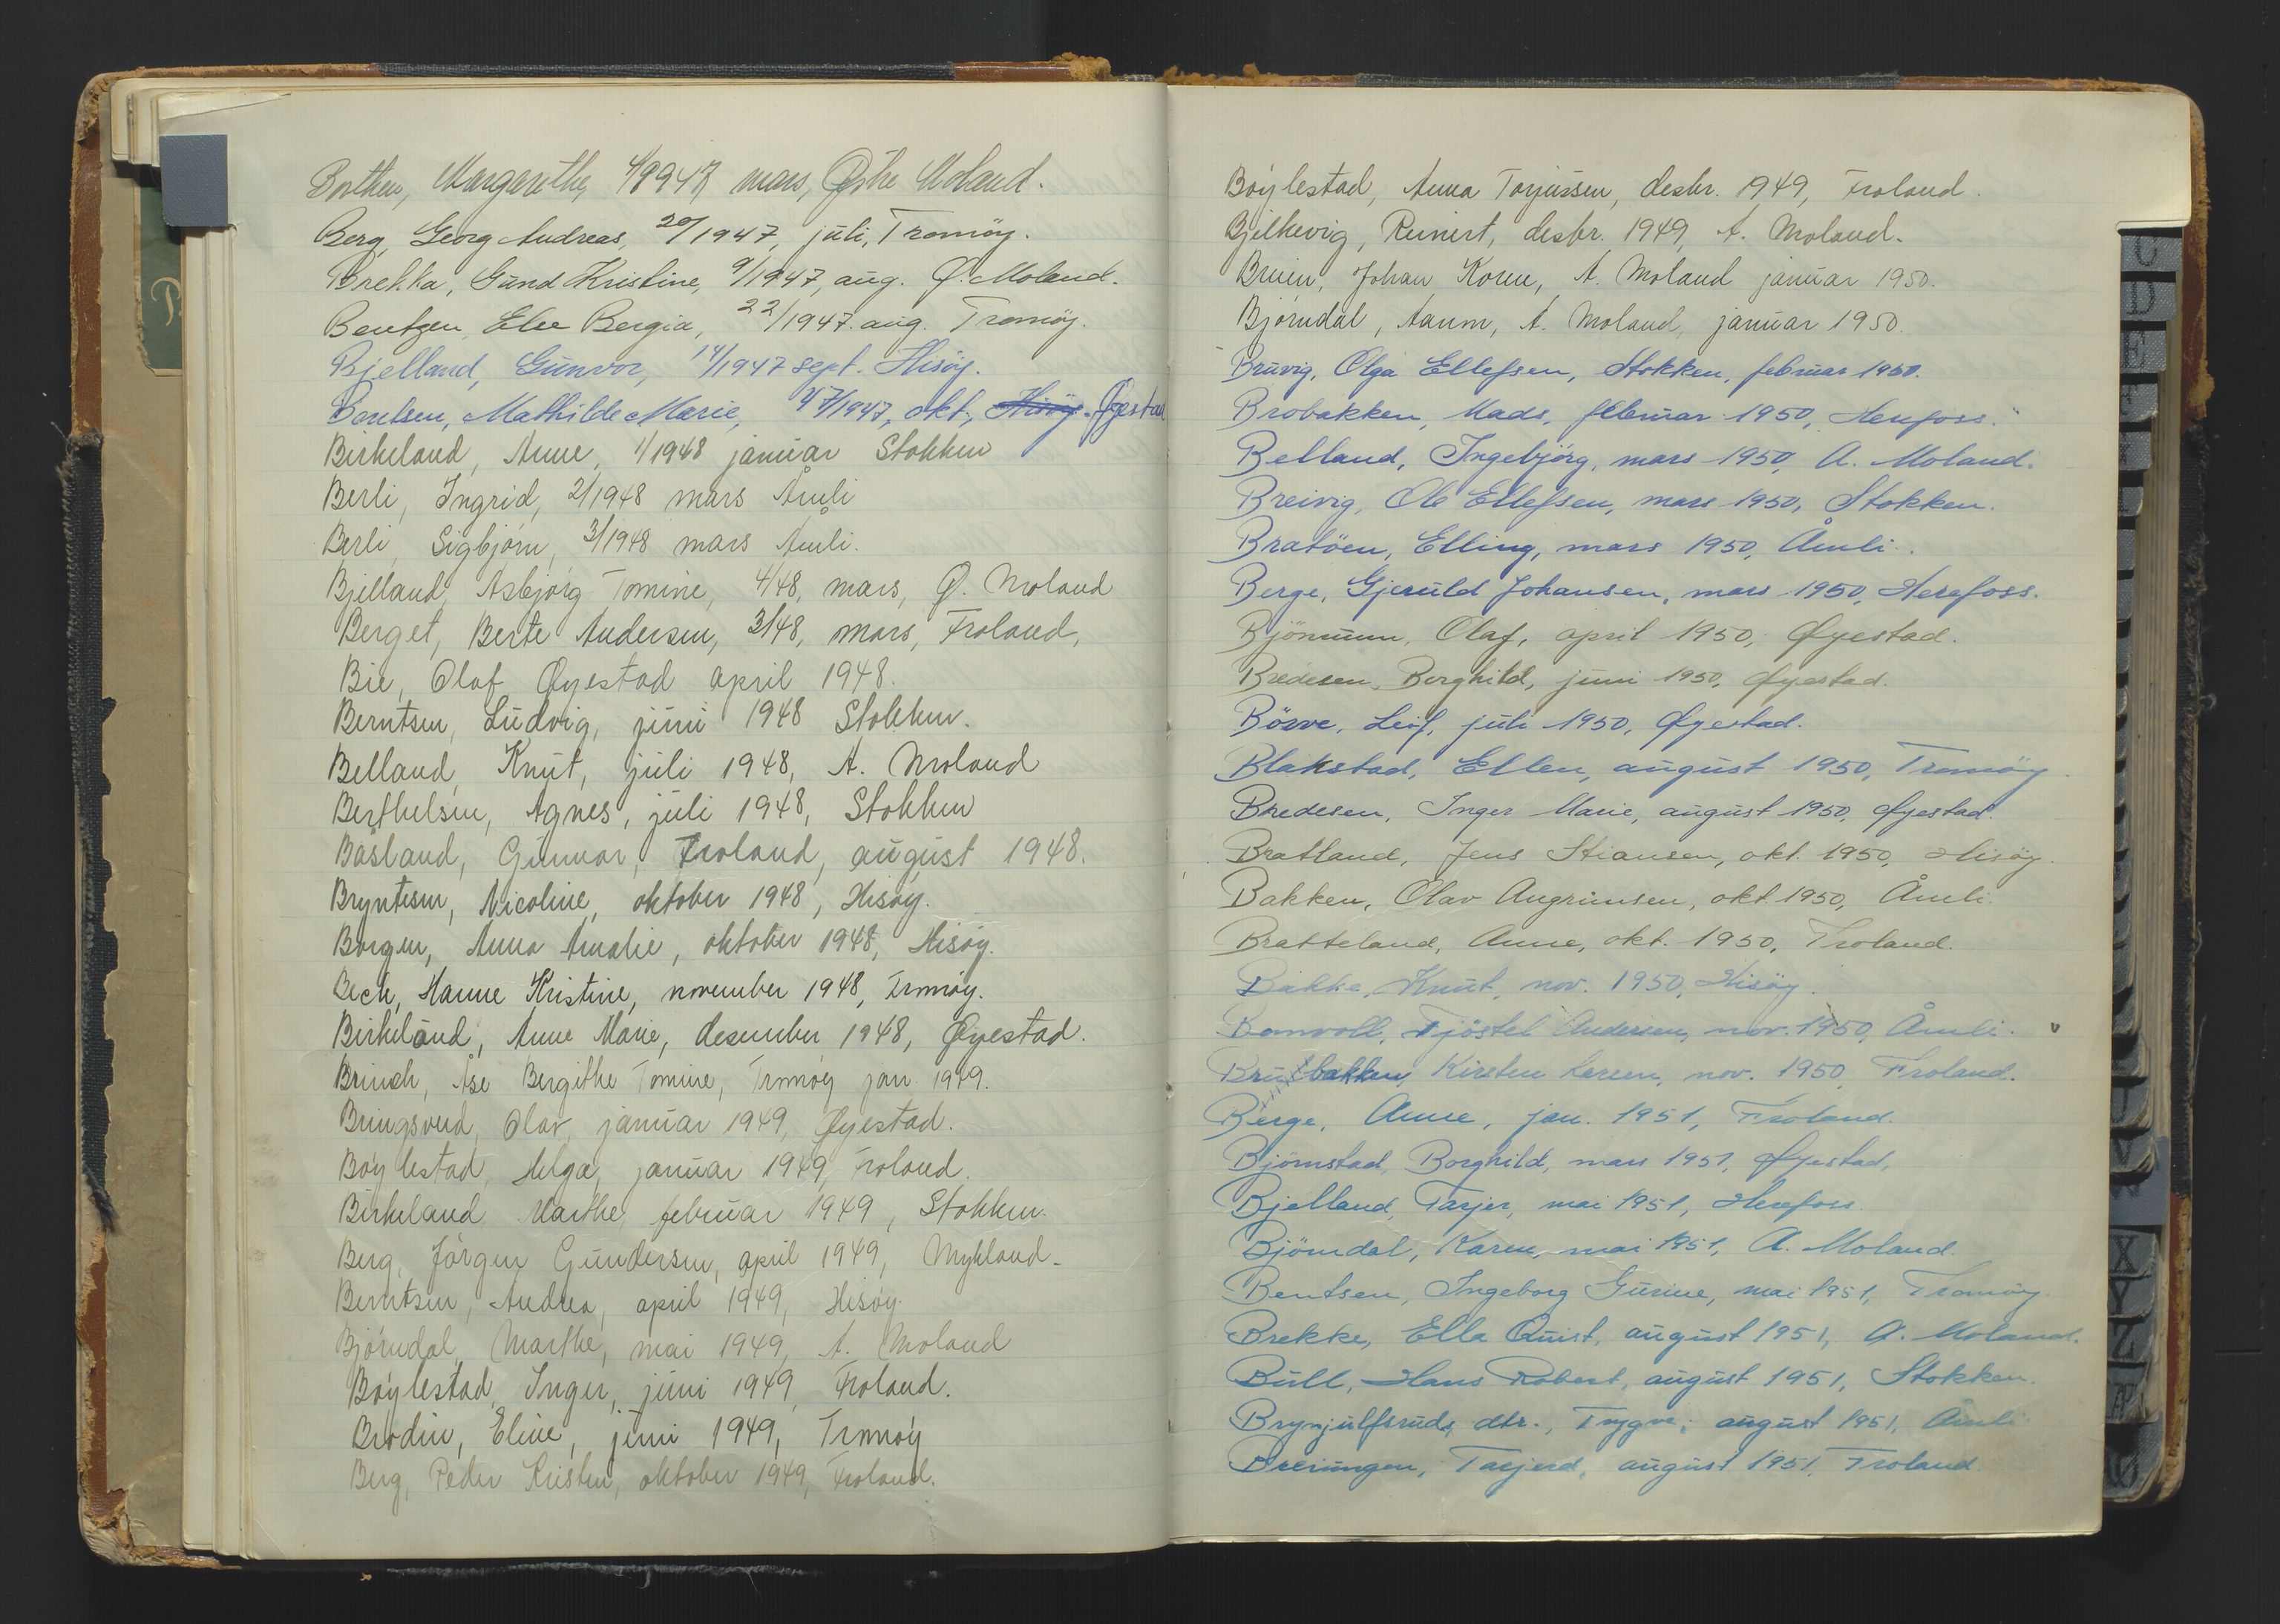 Borthen, Margarethe, 4/1947 mars, Østre Moland.
Berg, Georg Andreas, 20/1947, juli, Tromöy.
Brekka, Gund Kristine, 9/1947, aug. Ø. Moland.
Bentzen, Else Bergia, 22/1947. aug. Tromöy.
Bjelland, Gunvor, 14/1947 sept. Hisöy.
Berntsen, Mathilde Marie, 47/1947, okt., Hisöy. Øyestad
Birkeland, Anne, 1/1948 januar Stokken
Berli, Ingrid, 2/1948 mars Åmli
Berli, Sigbjørn, 3/1948 mars Åmli.
Bjelland, Asbjørg Tomine, 4/48, mars, Ø. Moland
Berget, Berte Andersen, 3/48, mars, Froland,
Bie, Olaf Øyestad april 1948.
Berntsen, Ludvig, juni 1948 Stokken.
Belland, Knut, juli 1948, A. Moland
Berthelsen, Agnes, juli 1948, Stokken
Båsland, Gunvor, Froland, august 1948.
Bryntesen, Nicoline, oktober 1948, Hisøy.
Borgen, Anna Amalie, oktober 1948, Hisøy.
Beck, Hanne Kristine, november 1948, Tromøy.
Birkeland, Anne Marie, desember 1948, Øyestad.
Brinch, Åse Bergithe Tomine, Tromøy jan. 1949.
Bringsverd, Olav, januar 1949, Øyestad.
Bøylestad, Helga, januar 1949, Froland.
Birkeland Marthe, februar 1949, Stokken.
Berg, Jørgen Gundersen, april 1949, Mykland.
Berntsen, Andrea, april 1949, Hisøy.
Bjørndal, Marthe, mai 1949, A. Moland
Bøylestad, Inger, juni 1949, Froland.
Brodin, Eline, juni 1949, Tromøy
Berg, Peder Kristen, oktober 1949, Froland.
Bøylestad, Anna Torjussen, desbr. 1949, Froland.
Bjelkevig, Reinert, desbr. 1949, A. Moland.
Bruin, Johan Koren, A. Moland januar 1950.
Bjørndal, Aanon, A. Moland, januar 1950.
Bruvig, Olga Ellefsen, Stokken, februar 1950.
Brobakken, Mads, februar 1950, Herefoss.
Belland, Ingebjörg, mars 1950, A. Moland.
Breivig, Ole Ellefsen, mars 1950, Stokken.
Bratöen, Elling, mars 1950, Åmli.
Berge, Gjeruld Johansen, mars 1950, Herefoss.
Bjönnum, Olaf, april 1950, Øyestad.
Bredesen, Borghild, juni 1950, Øyestad.
Börve, Leif, juli 1950, Øyestad.
Blakstad, Ellen, august 1950, Tromöy.
Bredesen, Inger Marie, august 1950, Øyestad.
Bratland, Jens Stiansen, okt. 1950, Hisöy.
Bakken, Olav Angrimsen, okt. 1950, Åmli.
Bratteland, Anne, okt. 1950, Froland.
Bakke, Knut, nov. 1950, Hisöy.
Bomvoll, Fjöstel Andersen, nov. 1950, Åmli. v
bakken, Kirsten Larsen, nov. 1950, Froland.
Berge, Anne, jan. 1951, Froland.
Björnstad, Borghild, mars 1951, Øyestad,
Bjelland, Tarjer, mai 1951, Herefoss.
Björndal, Karen, mai 1951, A. Moland.
Bentsen, Ingeborg Gurine, mai 1951, Tromöy.
Brekke, Ella Quist, august 1951, A. Moland.
Bull, Hans Robert, august 1951, Stokken.
Brynjulfsrud, dtr., Trygve, august 1951, Åmli.
Breiungen, Taejerd, august 1951, Froland
C
D
E
V
X
Y
Z
Æ
Ø